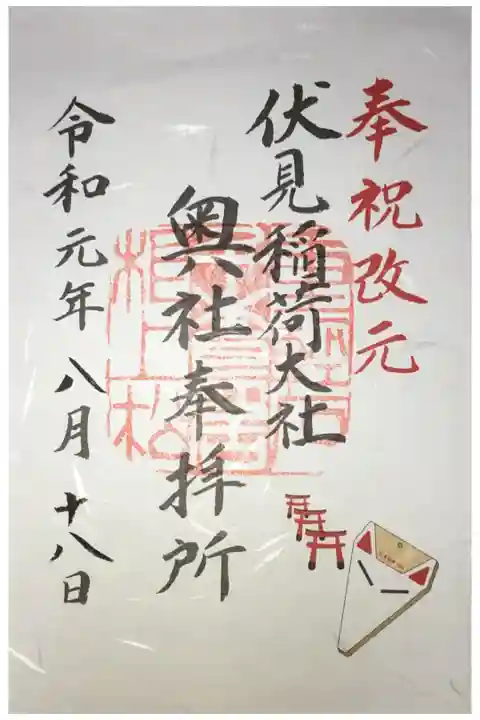 奉祝改元
伏見稲荷大社
奥社奉拝所
令和元年八月十八日